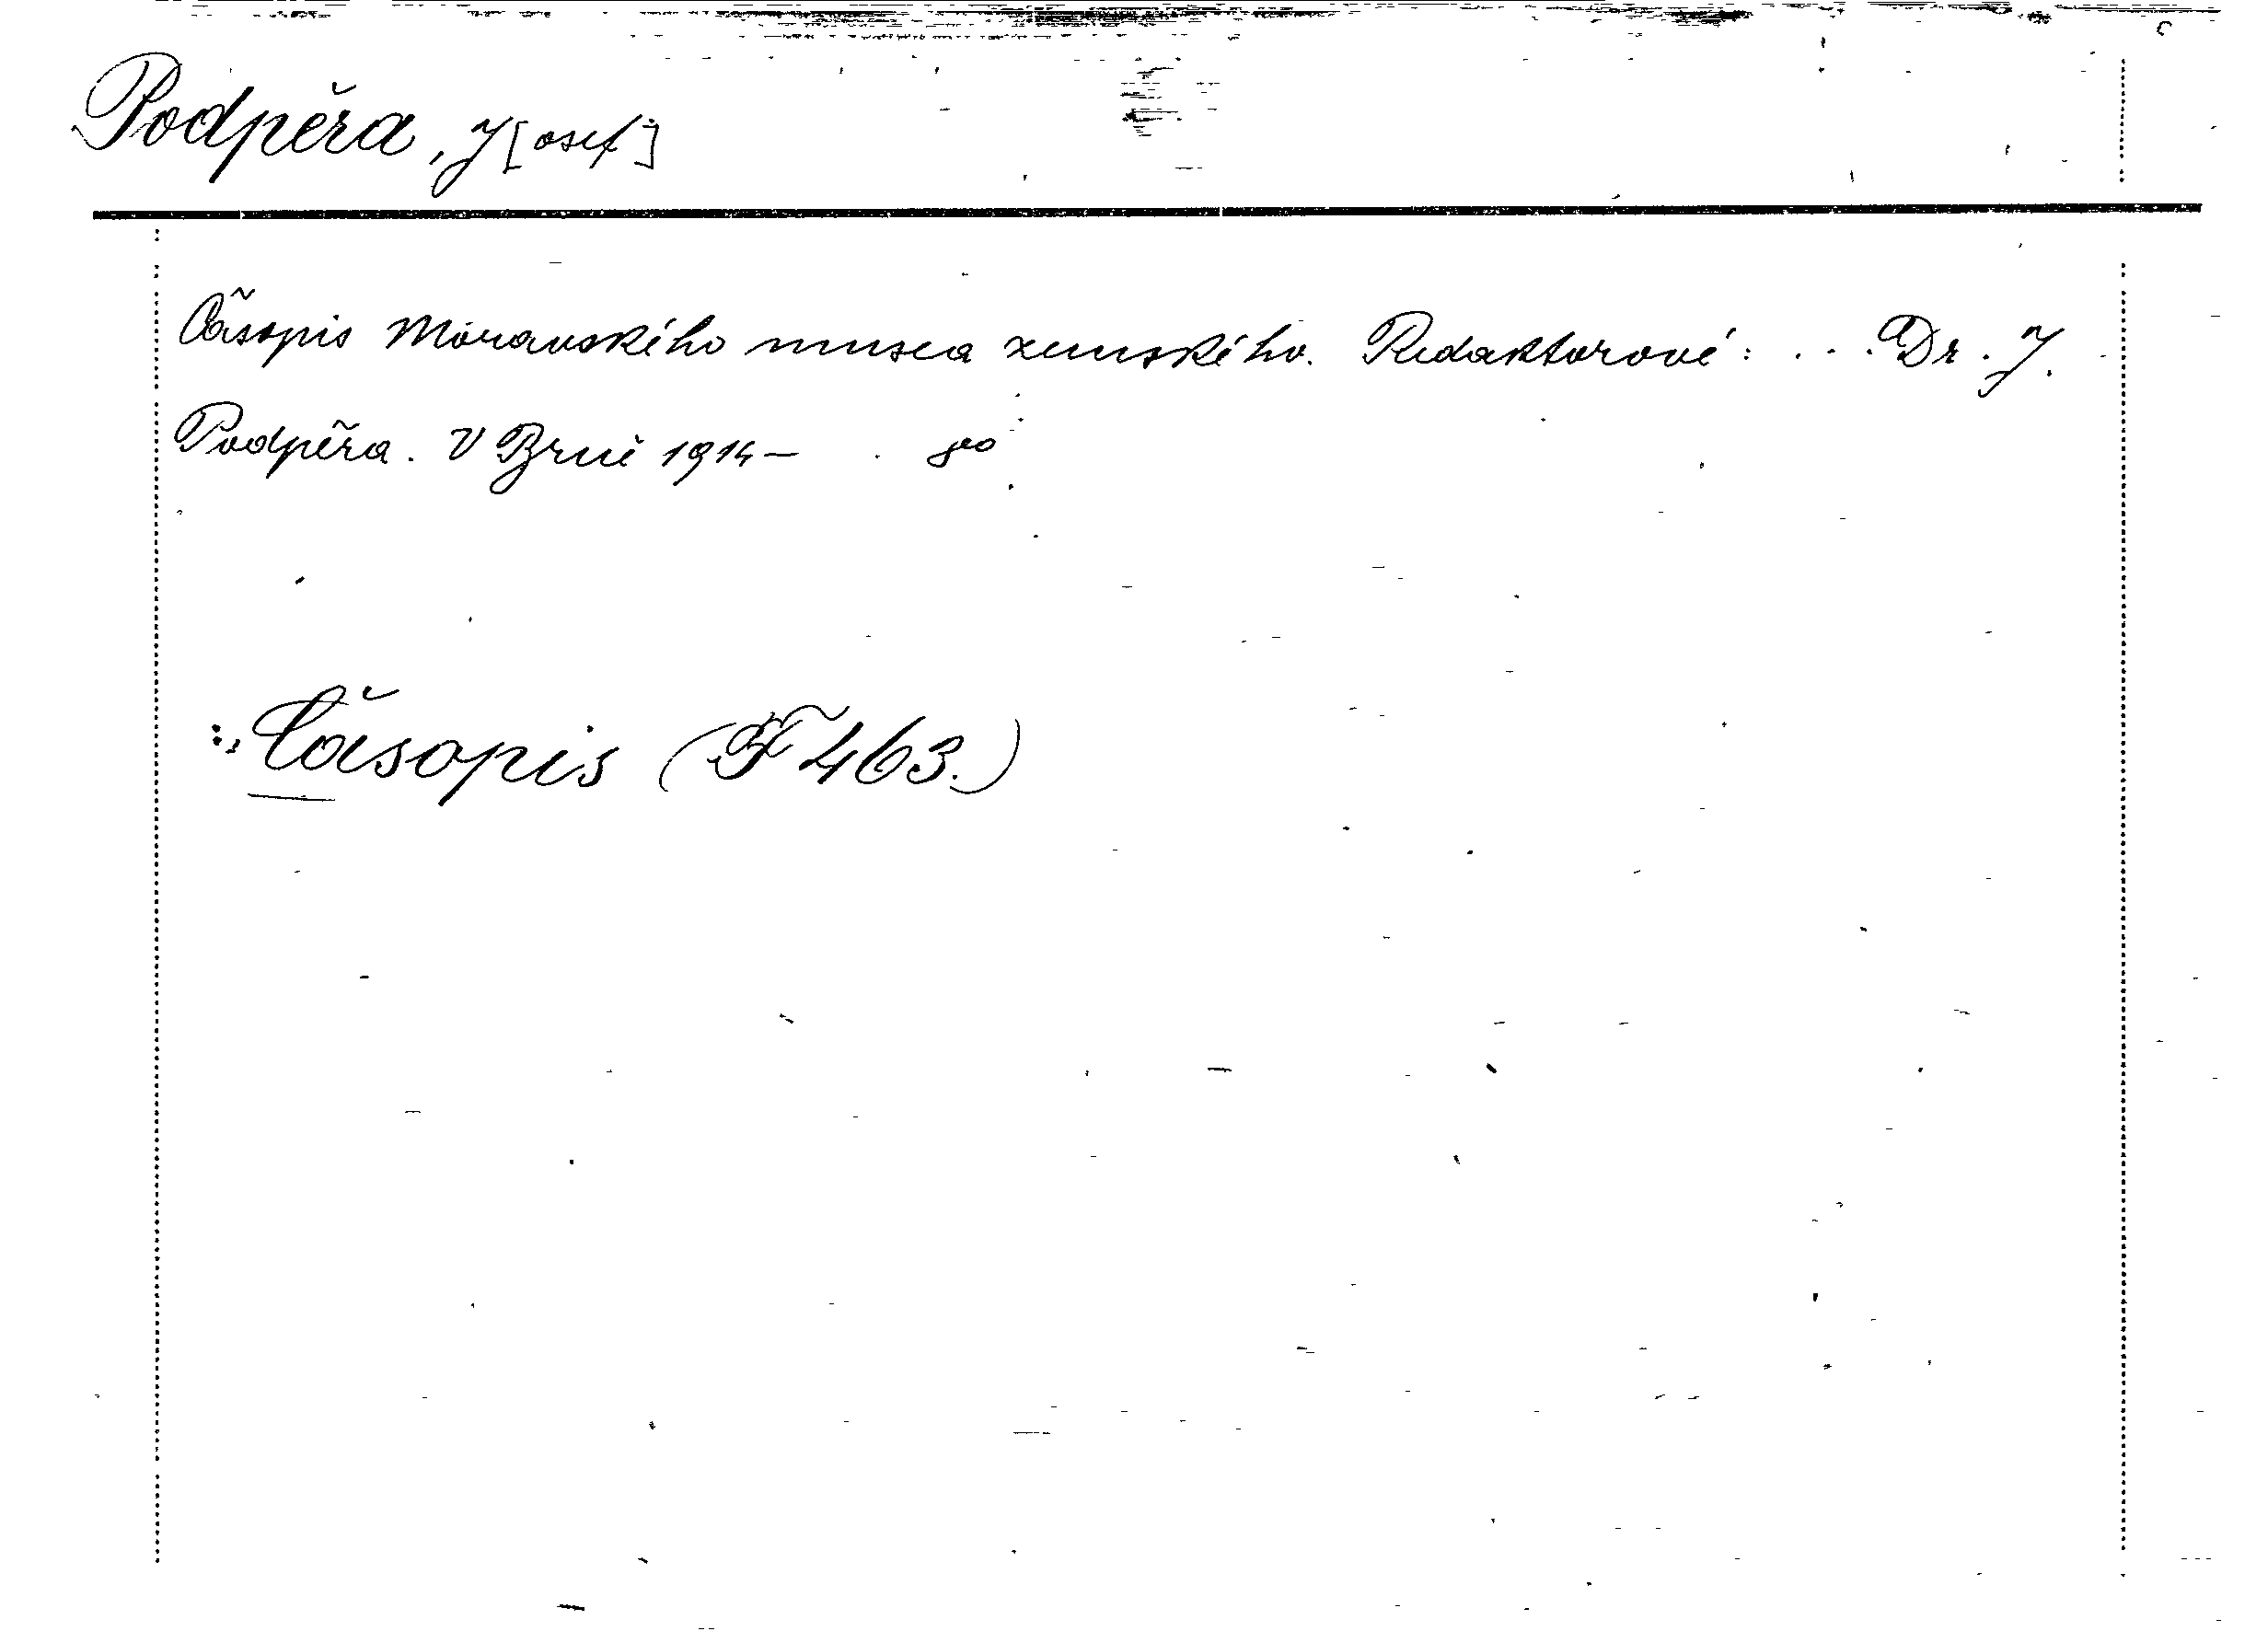 Podpěra, J[osef]
Časopis Moravského musea zemského. Redaktorové: ... Dr. J.
Podpěra. V Brně 1914- . 8vo
:, Časopis (F 463.)